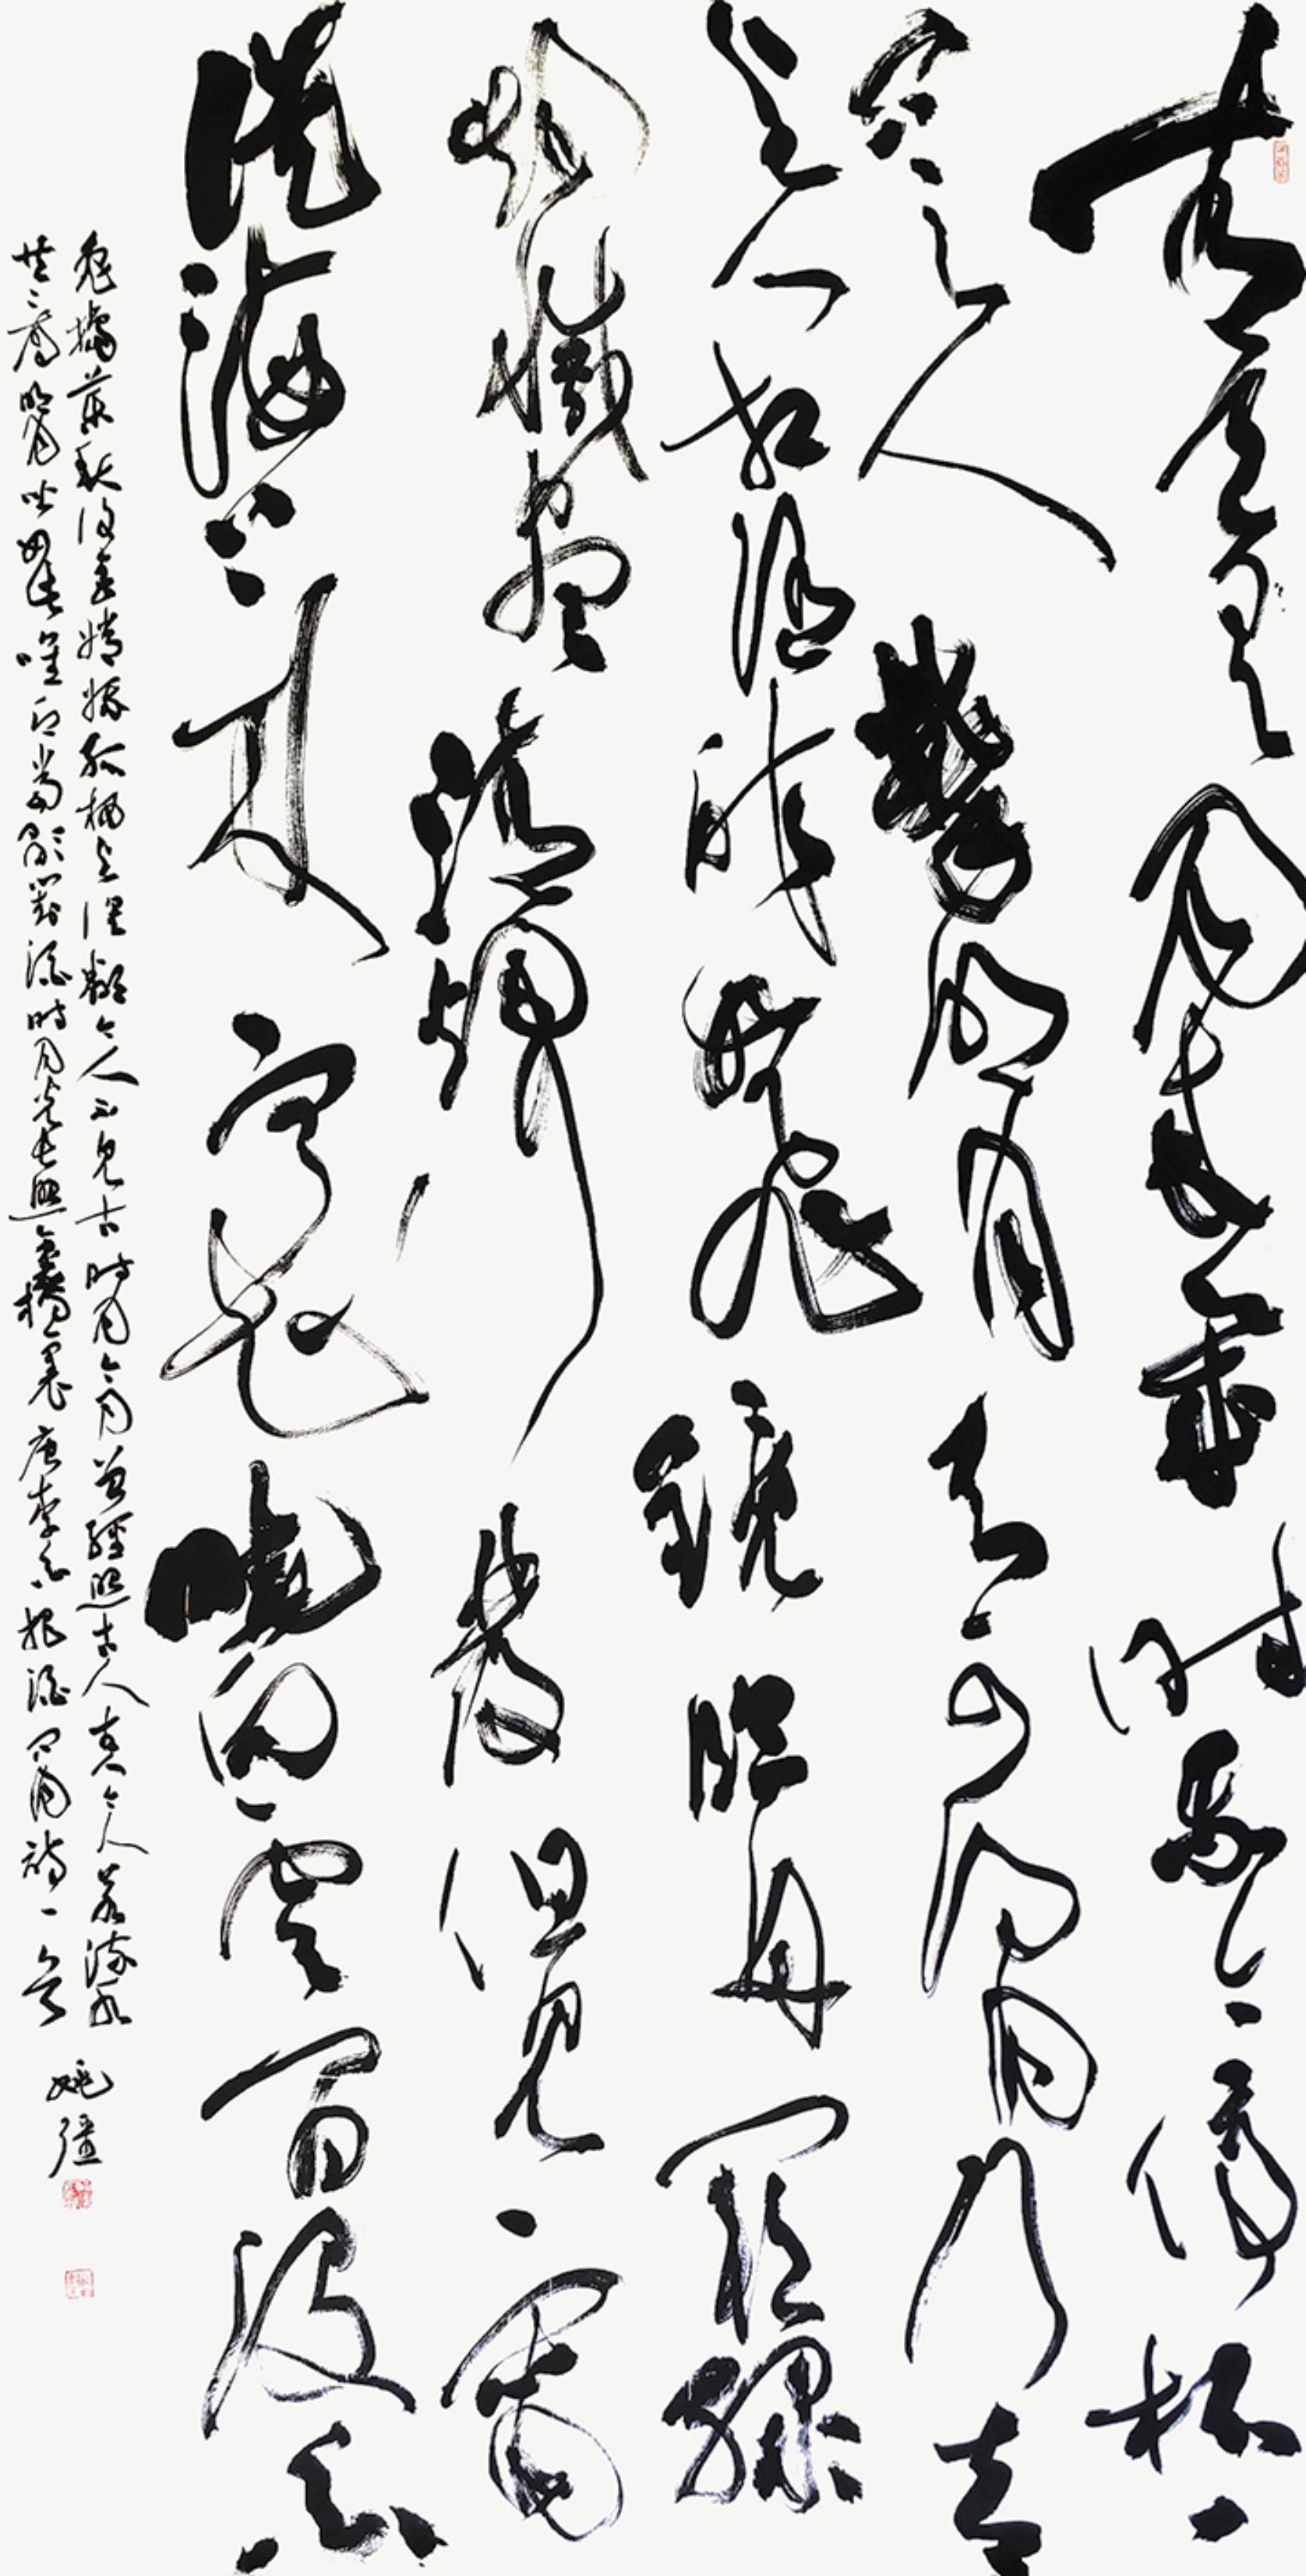 青天有月來幾時我今停杯一
問之人攀明月不可得月行却
與人相隨皎如飛鏡臨丹闕綠
烟滅盡清輝發但見宵
從海上來寧知曉向雲間没白
兔搗藥秋復春嫦娥孤栖與誰鄰今人不見古時月今月曾經照古人古人今人若流水
共看明月皆如此唯願當歌對酒時月光長照金樽裏唐李白把酒問月詩一首
姚疆